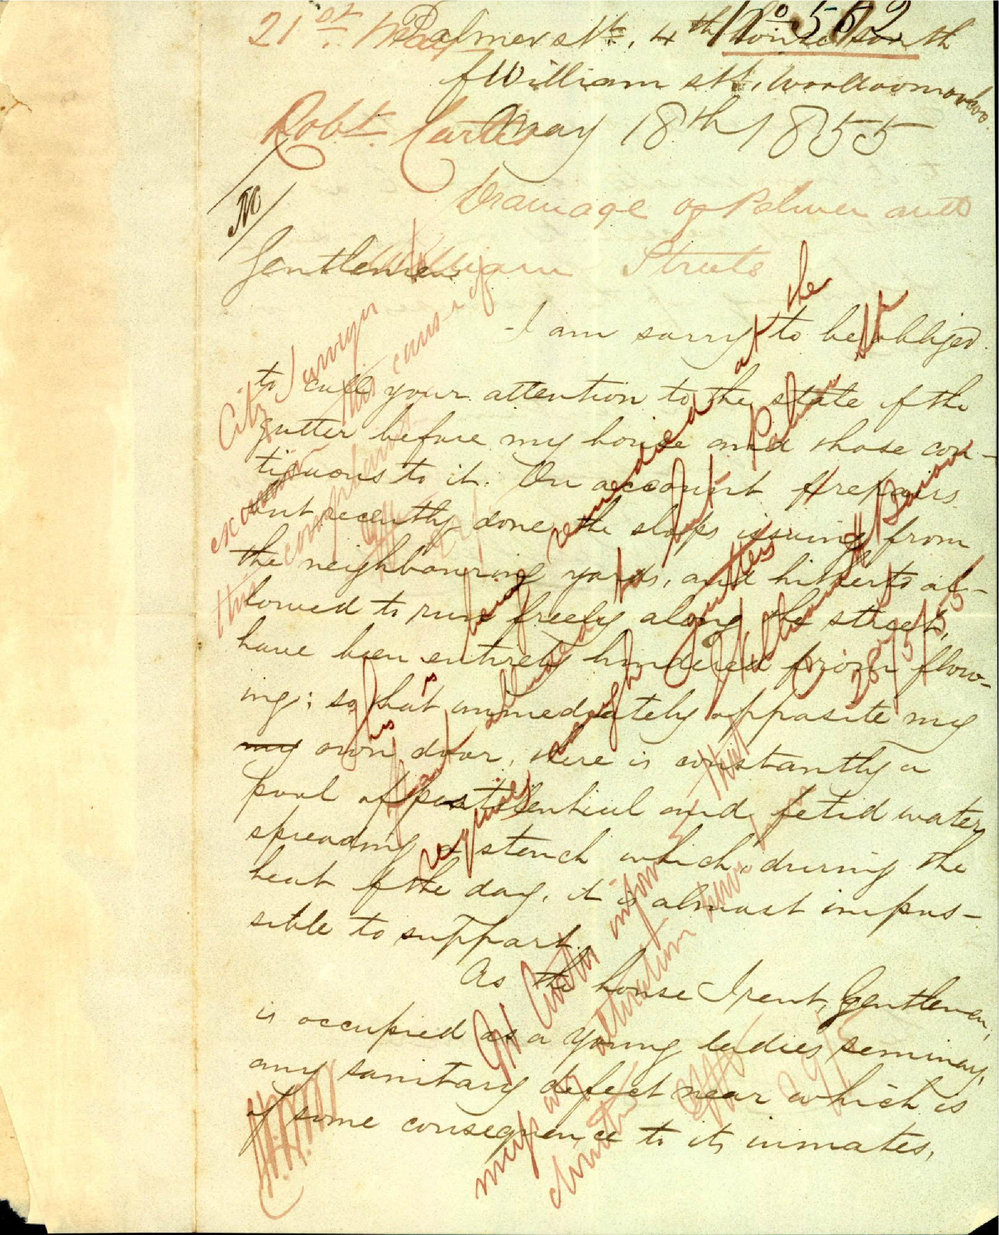 21st May
No 552
Palmer St, 4th house south
of William St, Woolloomooloo.
May 18th 1855
Robt. Carter
Drainage of Palmer and
William Streets
Gentlemen
I am sorry to be obliged
to call your attention to the state of the
gutter before my house and those con-
tiguous to it. On account of repairs
but recently done, the slops issuing from
the neighbouring yards, and hitherto al-
lowed to run freely along the street,
have been entirely hindered from flow-
ing; so that immediately opposite my
my own door, there is constantly a
pool of pestilential and fetid water,
spreading a stench which, during the
heat of the day, it is almost impos-
sible to support.
As the house I rent, Gentlemen,
is occupied as a young ladies seminary,
any sanitary defect near which is
of some consequence to its inmates,
City Surveyor
this cause of
complaint
This is being remedied at the
alluded to but Palmer St
requires rough gutters
William H Baron
C S
28/5/55
Mr Carter inform that
attention